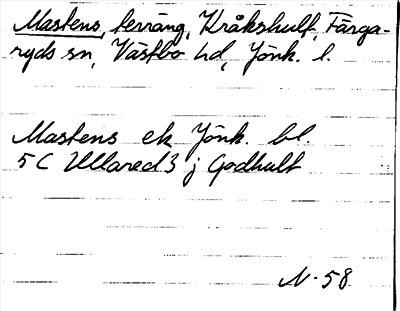 Mastens, terräng, Kråkshult, Färga-
ryds sn, Västbo hd, Jönk. l.
Mastens ek Jönk. bl.
5 C Ullared 3 j Godhult
N-58